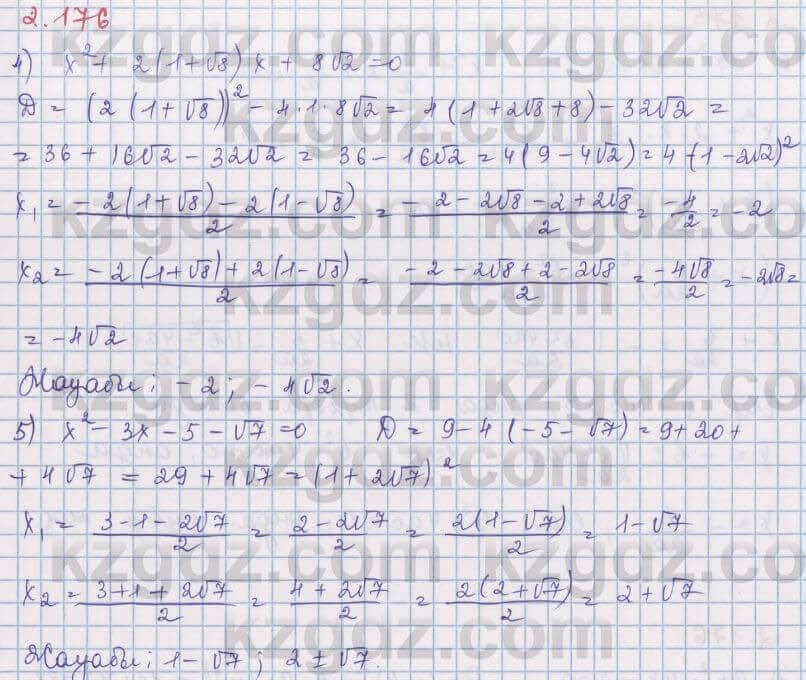 2.176
4) x² + 2(1+√8)x + 8√2 = 0
D = (2(1+√8))² - 4·1·8√2 = 4(1+2√8+8) - 32√2 =
= 36 + 16√2 - 32√2 = 36 - 16√2 = 4(9 - 4√2) = 4·(1-2√2)²
x₁ = (-2(1+√8) - 2(1-√8))/2 = (-2 - 2√8 - 2 + 2√8)/2 = -4/2 = -2
x₂ = (-2(1+√8) + 2(1-√8))/2 = (-2 - 2√8 + 2 - 2√8)/2 = (-4√8)/2 = -2√8 =
= -4√2
Жауабы: -2; -4√2.
5) x² - 3x - 5 - √7 = 0 D = 9 - 4(-5 - √7) = 9 + 20 +
+ 4√7 = 29 + 4√7 = (1 + 2√7)²
x₁ = (3 - 1 - 2√7)/2 = (2 - 2√7)/2 = (2(1-√7))/2 = 1 - √7
x₂ = (3 + 1 + 2√7)/2 = (4 + 2√7)/2 = (2(2+√7))/2 = 2 + √7
Жауабы: 1 - √7; 2 ± √7.
kzgdz.com